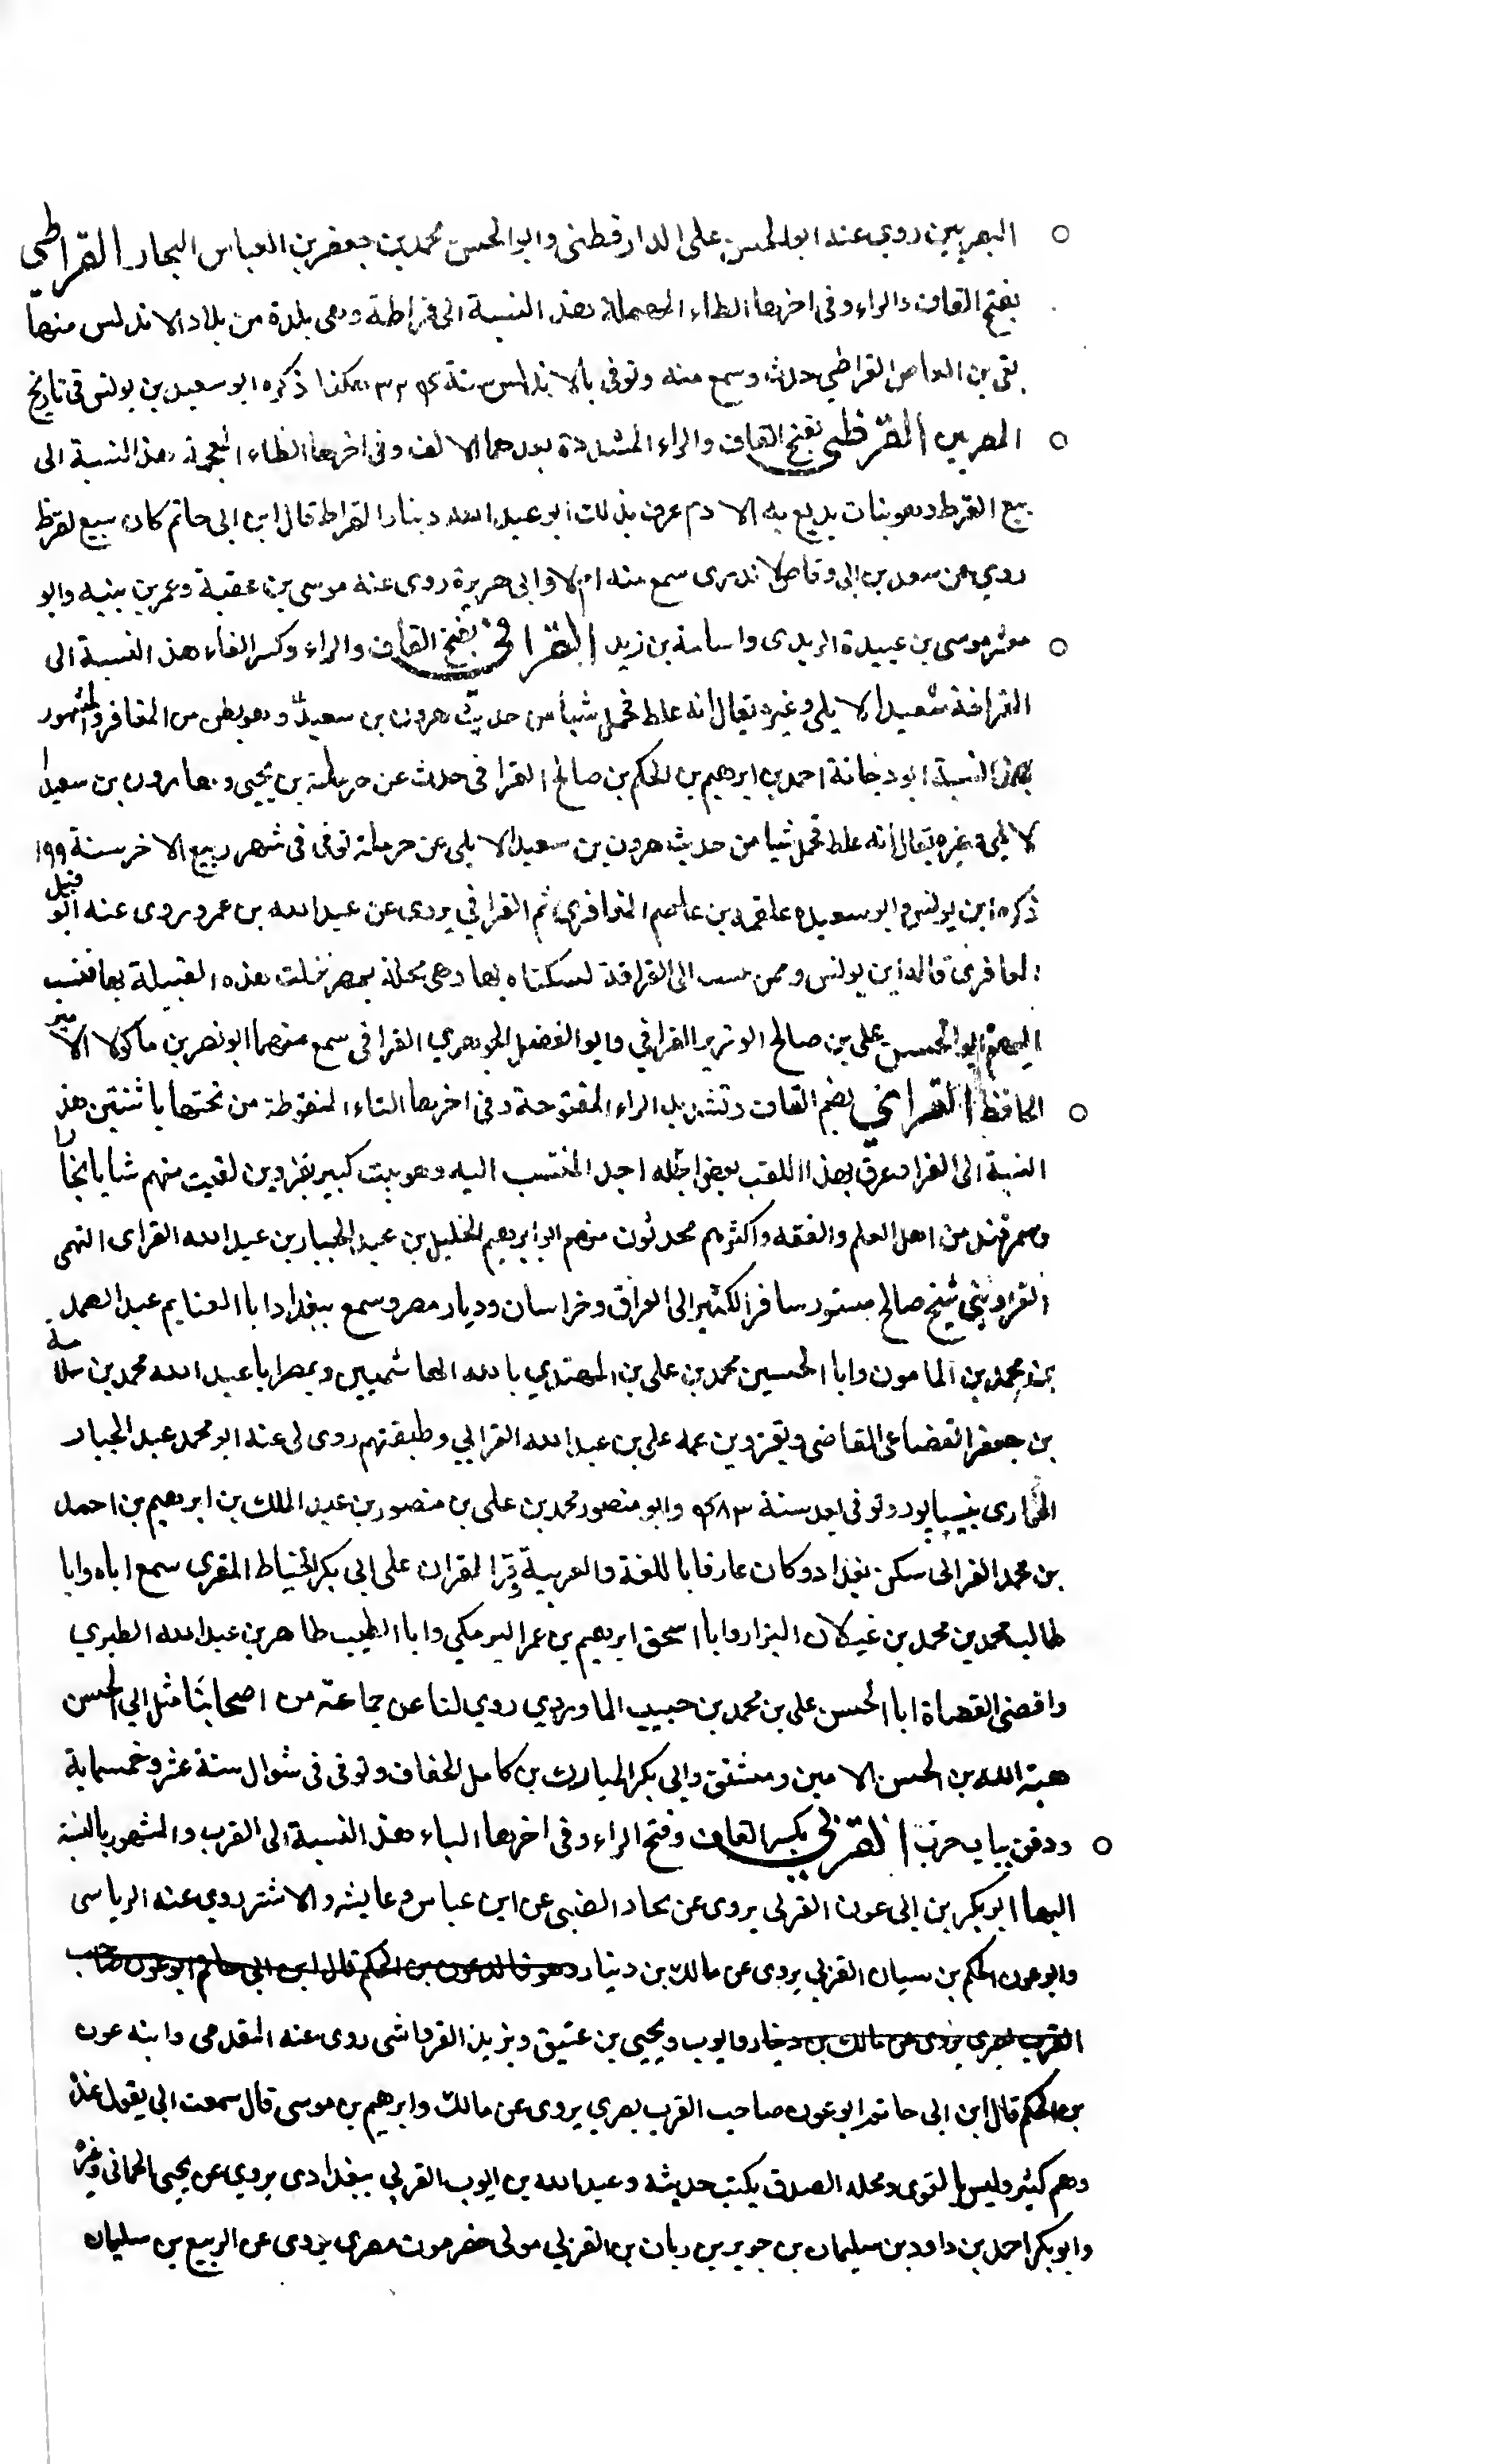 البصريين روى عنه ابوالحسن على الدارقطنى وابوالحسن محمد بن جعفر بن العباس النجار القراطي
بفتح القاف والراء وفى اخرها الطاء المهملة هذه النسبة الى قراطة وهى بلدة من بلاد الاندلس منها
بقى بن العاص القراطي حدث وسمع منه وتوفى بالاندلس سنة هكذا ذكره ابو سعيد بن يونس فى تاريخ
المصريين القرظى بفتح القاف والراء المشددة بعدهما الالف وفى اخرها الظاء المعجمة هذه النسبة الى
بيع القرط وهو نبات يدبغ به الادم عرف بذلك ابو عبد الله دينار القراط قال ابن ابى حاتم كان يبيع القرظ
روي عن سعد بن ابى وقاص لا ندرى سمع منه ام لا وابى هريرة روى عنه موسى بن عقبة وعمر بن نبيه وابو
معشر موسى بن عبيدة الربدى واسامة بن زيد القرافى بفتح القاف والراء وكسر الفاء هذه النسبة الى
القرافة سعيد الايلى وغيره يقال انه غلط فحمل شيأ من حديث هرون بن سعيد وهو بطن من المعافر والمشهور
بهذه النسبة ابو دجانة احمد بن ابرهيم بن الحكم بن صالح القرافى حدث عن حرملة بن يحيى وهارون بن سعيد
الايلى وغيره يقال انه غلط فحمل شيا من حديث هرون بن سعيد الايلى عن حرملة توفى فى شهر ربيع الاخر سنة ١٩٩
ذكره ابن يونس وابو سعيد علقمة بن عاصم المعافري ثم القرافي يروى عن عبد الله بن عمرو روى عنه ابو قبيل
المعافرى قاله ابن يونس وممن نسب الى القرافة لسكناه بها وهى محلة بمصر نزلت هذه القبيلة بها فنسب
اليهم ابو الحسن على بن صالح الوزير القرافي وابو الفضل الجوهري القرافى سمع منهما ابو نصر بن ماكولا الامير
الحافظ القرائي بضم القاف وتشديد الراء المفتوحة وفى اخرها التاء المنقوطة من تحتها باثنتين هذه
النسبة الى القرا وعرف بهذا اللقب بعض اجداد المنتسب اليه وهو بيت كبير بقزوين لقيت منهم شابا بخارا
وسمرقند من اهل العلم والفقه واكثرهم محدثون منهم ابو ابرهيم الخليل بن عبد الجبار بن عبد الله القراى التميمى
القزوينى شيخ صالح مستور سافر الكثير الى العراق وخراسان وديار مصر وسمع ببغداد ابا الغنايم عبد الصمد
بن محمد بن المامون وابا الحسين محمد بن على بن المهتدي بالله الهاشميين وبمصر ابا عبد الله محمد بن سلامة
بن جعفر القضاعى القاضى وبقزوين عمه على بن عبد الله القرايي وطبقتهم روى لى عنه ابو محمد عبد الجبار
بنيسابور وتوفى بعد سنة وابو منصور محمد بن على بن منصور بن عبد الملك بن ابرهيم بن احمد
بن محمد القرائى سكن بغداد وكان عارفا باللغة والعربية قرا القران على ابى بكر الخياط المقرى سمع اباه وابا
طالب محمد بن محمد بن غيلان البزار وابا اسحق ابرهيم بن عمر البرمكي وابا الطيب طاهر بن عبد الله الطبري
واقضى القضاة ابا الحسن على بن محمد بن حبيب الماوردي روي لنا عن جماعة من اصحابنا مثل ابي الحسن
هبة الله بن الحسن الامين بدمشق وابى بكر المبارك بن كامل الخفاف وتوفى فى شوال سنة عشر وخمسماية
ودفن بباب حرب القربي بكسر القاف وفتح الراء وفى اخرها الباء هذه النسبة الى القرب والمشهور بالنسبة
اليها ابو بكر بن ابى عون القربى يروى عن بحاد الضبى عن ابن عباس وعايشه والاشتر روي عنه الرياسى
وابو عون الحكم بن سيان القربي يروى عن مالك بن دينار وهو خالد عون بن الحكم قال ابن ابي حاتم ابو عون صاحب
القرب بصري يروى عن مالك بن دينار وايوب ويحيى بن عتيق ويزيد الرقاشى روى عنه المقدمى وابنه عون
بن الحكم قال ابن ابى حاتم ابو عون صاحب القرب بصري يروى عن مالك وابرهيم بن موسى قال سمعت ابي يقول عنده
وهم كثير وليس بالقوى ومحله الصدق يكتب حديثه وعبد الله بن ايوب القربي ببغدادى يروي عن يحيى الحمانى وغيره
وابو بكر احمد بن داود بن سليمان بن جوير بن ريان بن القربي مولى حضرموت مصرى يروى عن الربيع بن سليمان